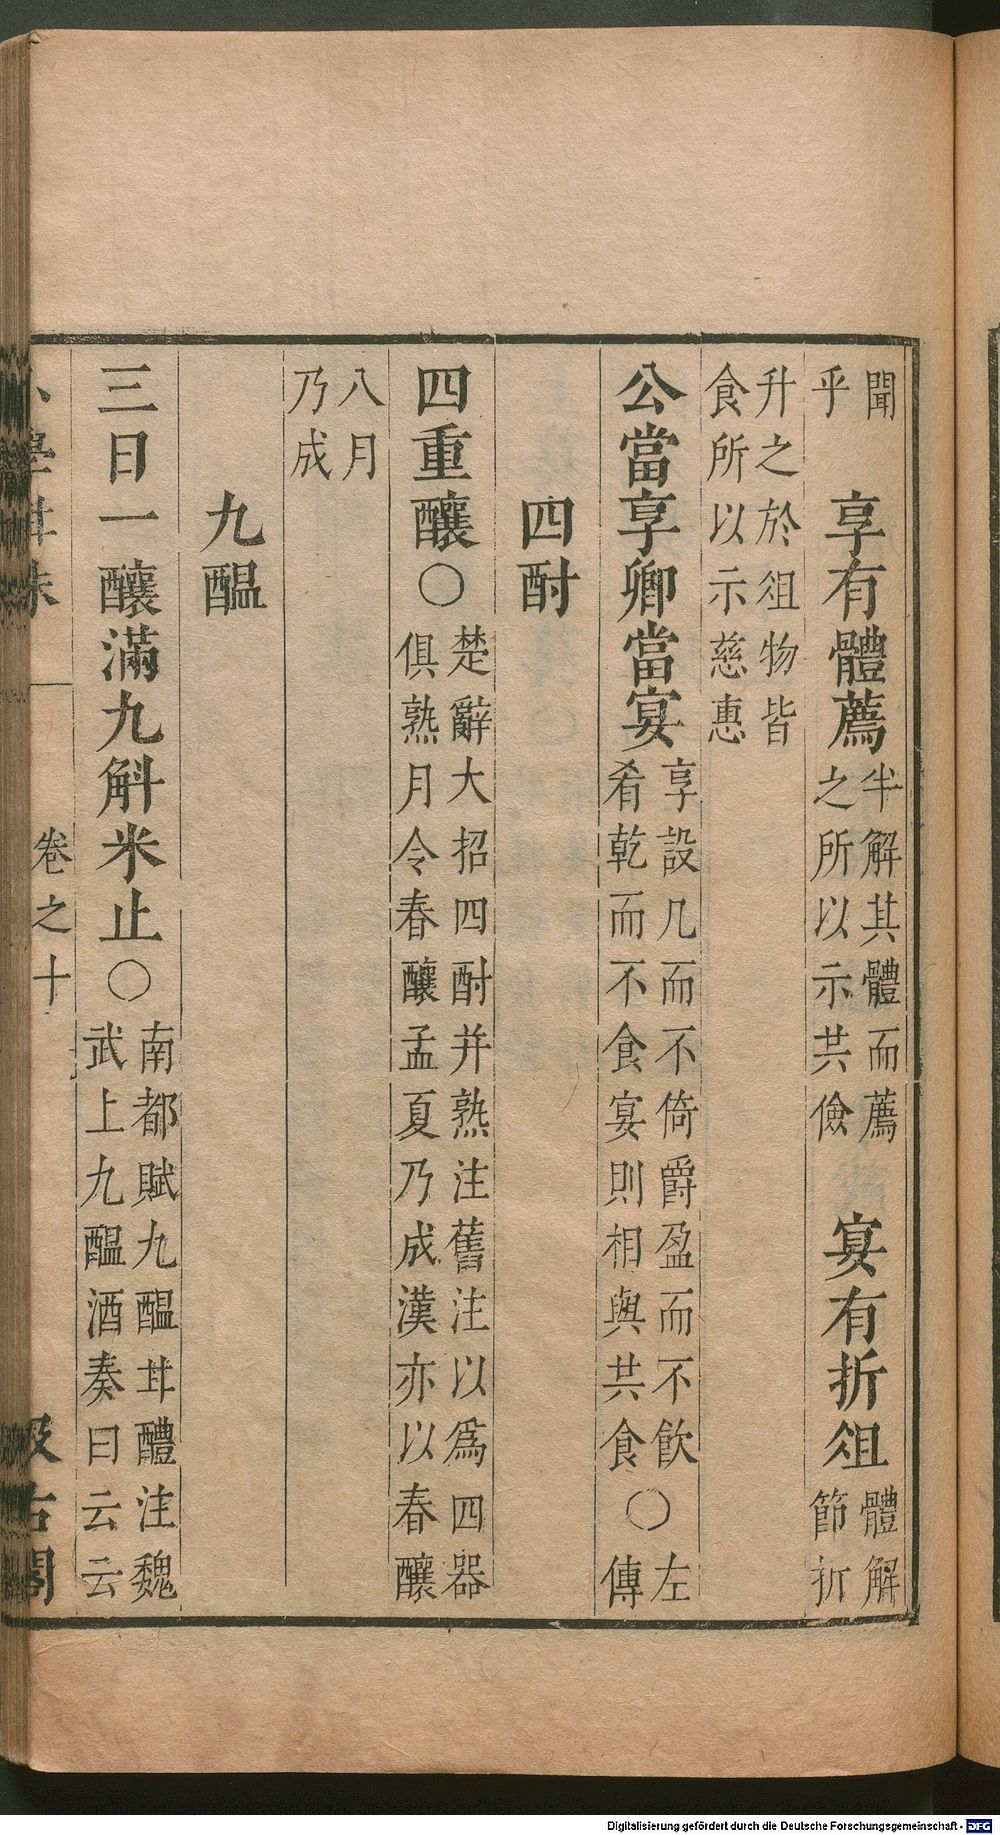 聞
乎
享有體薦
半解其體而薦
之所以示共儉
宴有折俎
體解
節折
升之於俎物皆
食所以示慈惠
公當享卿當宴
享設几而不倚爵盈而不飲〇左
肴乾而不食宴則相與共食〇傳
四酎
四重釀〇
楚辭大招四酎并熟注舊注以爲四器
俱熟月令春釀孟夏乃成漢亦以春釀
八月
乃成
九醖
三日一釀滿九斛米止〇
南都賦九醖甘醴注魏
武上九醖酒奏曰云云
卷之十
Digitalisierung gefördert durch die Deutsche Forschungsgemeinschaft - DFG